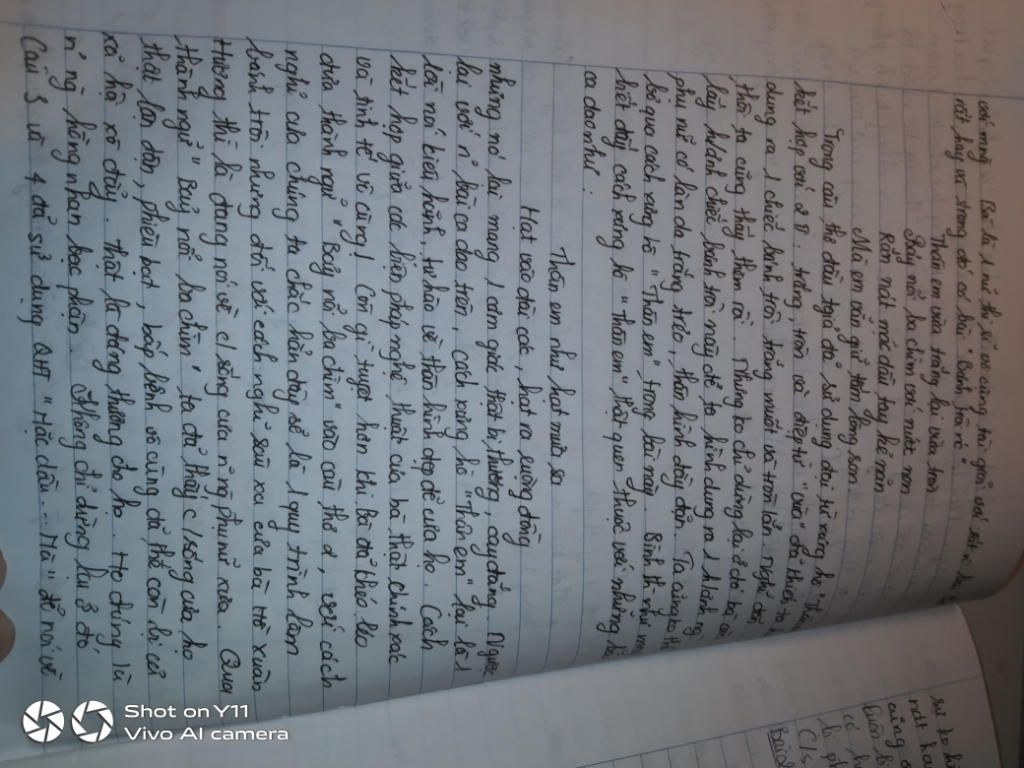 với mỹ Bà là 1 nữ thi sĩ vô cùng tài giỏi với sắc
rất hay và trong đó có bài " Bánh trôi nc"
Thân em vừa trắng lại vừa tròn
Bảy nổi ba chìm với nước non
Rắn nát mặc dầu tay kẻ nặn
Mà em vẫn giữ tấm lòng son
Trong câu thơ đầu tgiả đã sử dụng đại từ xưng hô "Thân
kết hợp với 2 TT trắng, tròn và điệp từ "vừa" đã thích
dung ra 1 chiếc bánh trôi trắng muốt và tròn lẳn nghe
thôi ta cũng thấy thèm rồi. Nhưng ko chỉ dừng lại ở đó bà còn
lấy h/ảnh chiếc bánh trôi này để ta hình dung ra 1 h/ảnh ng
phụ nữ có làn da trắng trẻo, thân hình đầy đặn. Ta
bỏ qua cách xưng hô "Thân em" trong bài này. Bình thường
biết đấy cách xưng hô "thân em" thật quen thuộc với những
ca dao như :
Thân em như hạt mưa sa
Hạt vào đài các, hạt ra ruộng đồng
nhưng nó lại mang 1 cảm giác thật bi thương, cay đắng. Ngược
lại với n~ bài ca dao trên, cách xưng hô "Thân em" lại là 1
lời nói kiêu hãnh, tự hào về thân hình đẹp đẽ của họ. Cách
kết hợp giữa các biện pháp nghệ thuật của bà thật chính xác
và tinh tế vô cùng! Còn gì tuyệt hơn khi Bà đã khéo léo
đưa thành ngữ " Bảy nổi ba chìm" vào câu thơ 2, với cách
nghĩ của chúng ta chắc hẳn đây sẽ là 1 quy trình làm
bánh trôi nhưng đối với cách nghĩ sâu xa của bà Hồ Xuân
Hương thì là đang nói về c/sống của n~ ng phụ nữ xưa. Qua
thành ngữ " Bảy nổi ba chìm" ta đã thấy c/sống của họ
thật lận đận, phiêu bạt, bấp bênh vô cùng đã thế còn bị cả
xã hội xô đẩy. thật là đáng thương cho họ. Họ đúng là
n~ ng hồng nhan bạc phận Không chỉ dừng lại ở đó
Câu 3 và 4 đã sử dụng QHT "Mặc dầu... Mà" để nói về